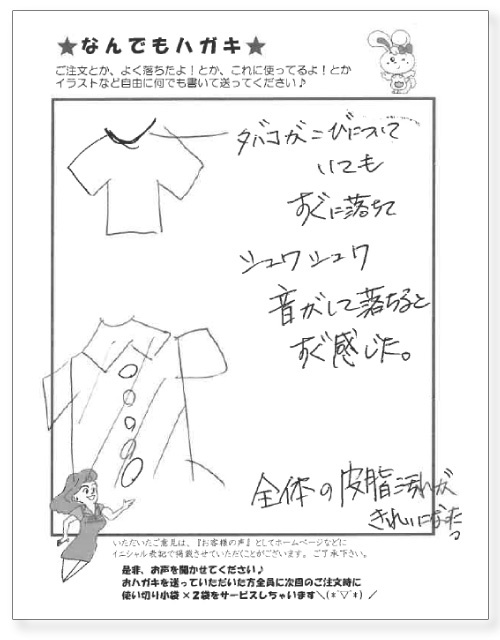 ★なんでもハガキ★
ご注文とか、よく落ちたよ！とか、これに使ってるよ！とか
イラストなど自由に何でも書いて送ってください♪
タバコがこびについて
いても
すぐに落ちて
シュワシュワ
音がして落ちると
すぐ感じた。
全体の皮脂汚れが
きれいになった
いただいたご意見は、『お客様の声』としてホームページなどに
イニシャル表記で掲載させていただくことがございます。ご了承下さい。
是非、お声を聞かせてください♪
おハガキを送っていただいた方全員に次回のご注文時に
使い切り小袋×2袋をサービスしちゃいます＼(*´▽`*)／